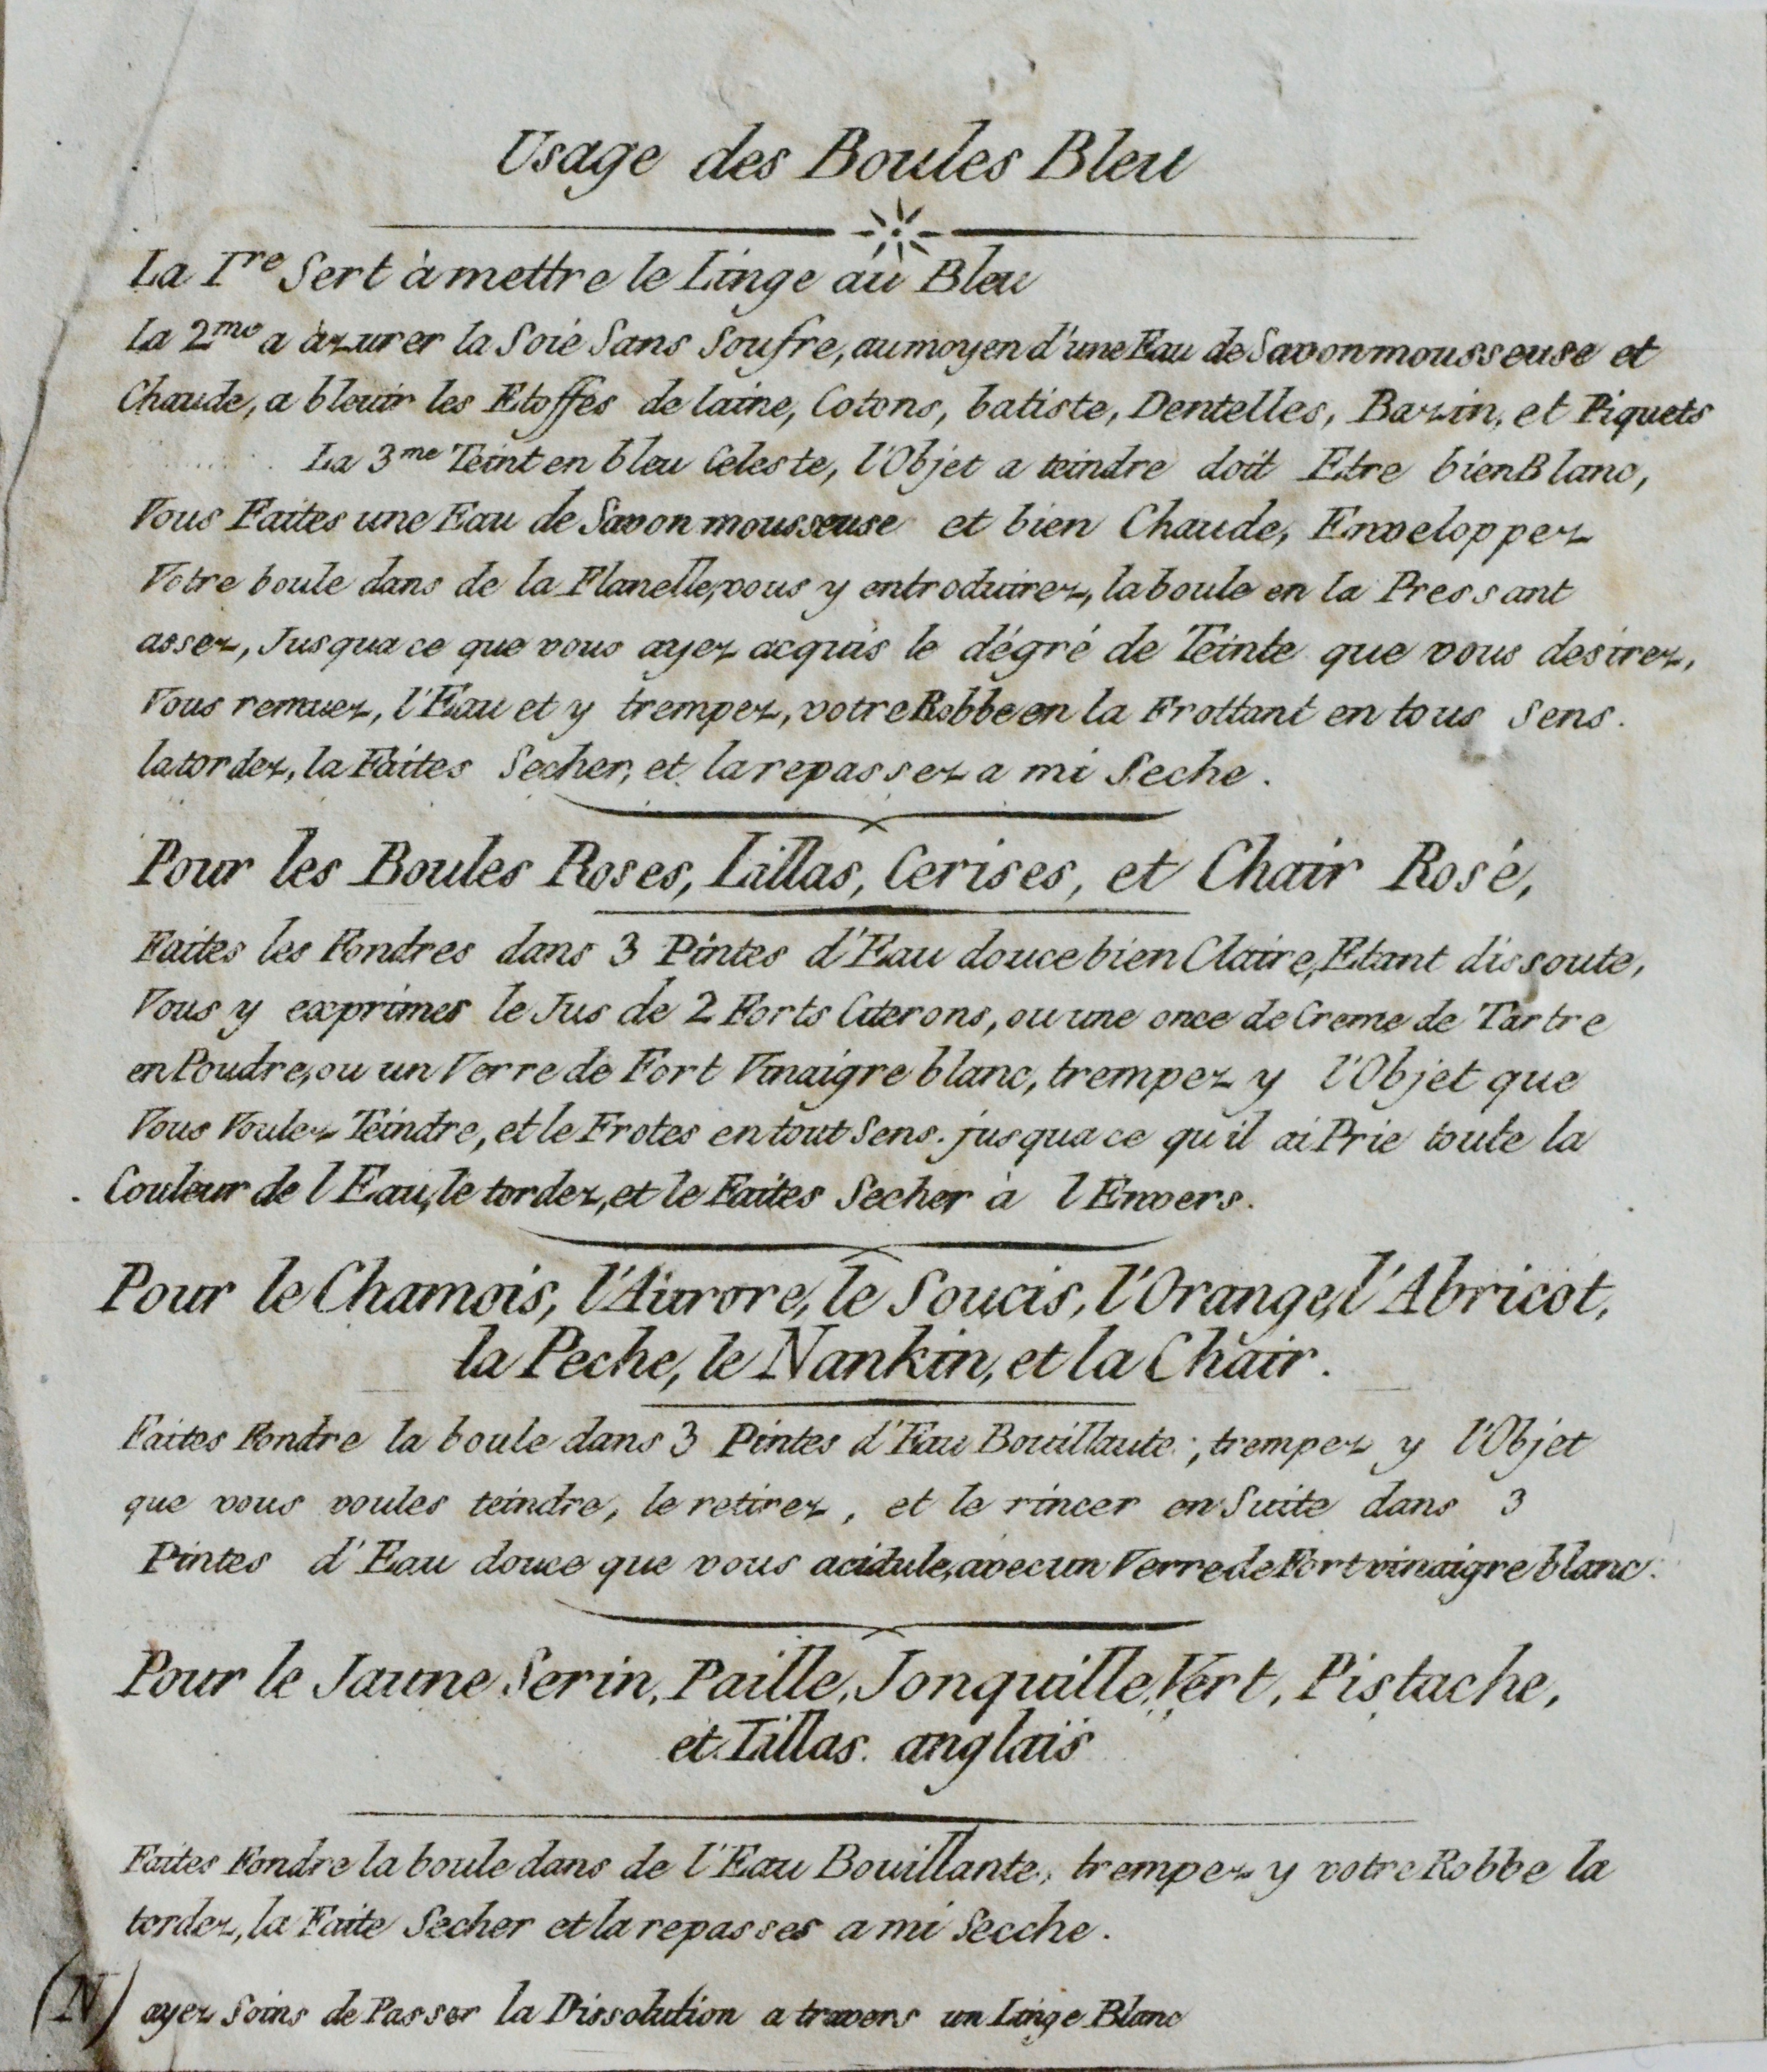 Usage des Boules Bleu
La 1re Sert à mettre le Linge au Bleu
La 2me a àzurer la Soié Sans Soufre, au moyen d'une Eau de Savon mousseuse et
Chaude, a bleuir les Etoffes de laine, Cotons, batiste, Dentelles, Bazin, et Piquets
La 3me Teint en bleu Celeste, l'Objet a teindre doit Etre bien Blanc,
Vous Faites une Eau de Savon mousseuse et bien Chaude, Enveloppez
Votre boule dans de la Flanelle, vous y entroduirez, la boule en la Pressant
assez, Jusqua ce que vous ayez acquis le dégré de Teinte que vous desirez,
Vous remuez, l'Eau et y trempez, votre Robbe en la Frottant en tous Sens.
la tordez, la Faites Secher, et la repassez a mi Seche.
Pour les Boules Roses, Lillas, Cerises, et Chair Rosé,
Faites les Fondres dans 3 Pintes d'Eau douce bien Claire, Etant dissoute,
Vous y exprimes le Jus de 2 Forts Citerons, ou une once de Creme de Tartre
en Poudre, ou un Verre de Fort Vinaigre blanc, trempez y l'Objet que
Vous Voulez Teindre, et le Frotes en tout Sens. jusqua ce qu il ai Prie toute la
Couleur de l Eau, le tordez, et le Faites Secher à l Envers.
Pour le Chamois, l'Aurore, le Soucis, l'Orange, l'Abricot,
la Peche, le Nankin, et la Chair.
Faites Fondre la boule dans 3 Pintes d'Eau Bouillaute, trempez y l'Objet
que vous voules teindre, le retirez, et le rincer en Suite dans 3
Pintes d'Eau douce que vous acidule, avec un Verre de Fort vinaigre blanc.
Pour le Jaune Serin, Paille, Jonquille, Vert, Pistache,
et Lillas. anglais
Faites Fondre la boule dans de l'Eau Bouillante, trempez y votre Robbe la
tordez, la Faite Secher et la repasses a mi Secche.
(N) ayez Soins de Passer la Dissolution a travers un Linge Blanc